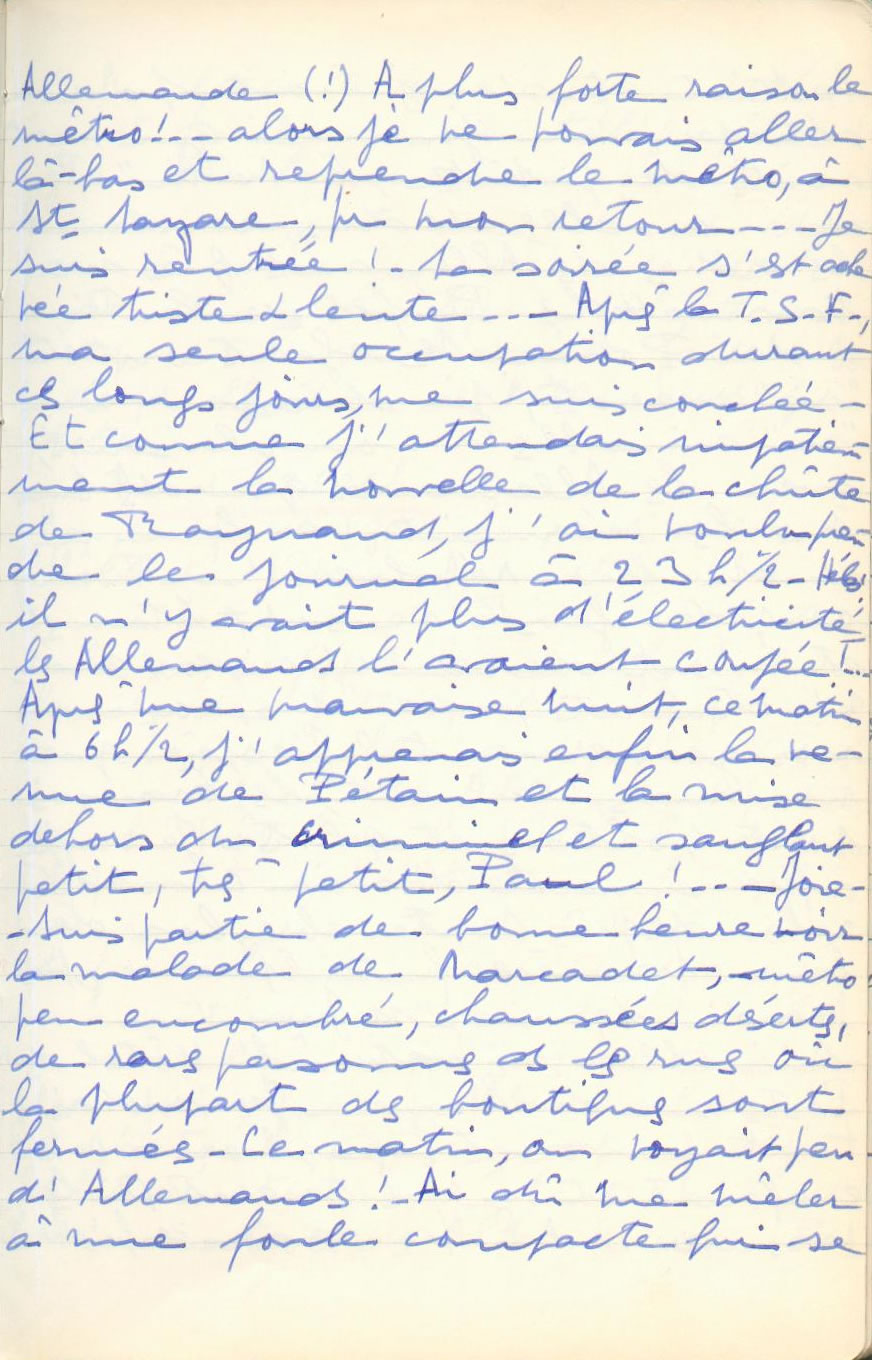 Allemande (!) A plus forte raison le
métro!-- alors je ne pouvais aller
là-bas et reprendre le métro, à
St Lazare, pr mon retour --- Je
suis rentrée !- La soirée s'est ache
vée triste & lente --- Aps la T.S.F.,
ma seule occupation durant
cs longs jours, me suis couchée -
Et comme j'attendais impatiem
ment la nouvelle de la chûte
de Raynaud, j'ai voulu pren
dre le journal à 23 h 1/2 - Hélas!
il n'y avait plus d'électricité,
ls Allemands l'avaient coupée!--
Aps une mauvaise nuit, ce matin
à 6 h 1/2, j'apprenais enfin la ve-
nue de Pétain et la mise
dehors du criminel et sanglant
petit, trs petit, Paul ! --- Joie-
-Suis partie de bonne heure voir
la malade de Marcadet, - métro
peu encombré, chaussées déserts,
de rars personns ds ls rus où
la plupart ds boutiqus sont
fermés - Ce matin, on voyait peu
d'Allemands !- Ai dû me mêler
à une foule compacte qui se